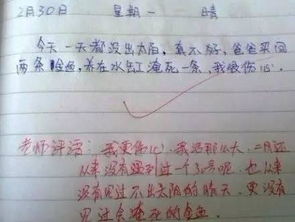 2月30日 星期一 晴
今天一天都没出太阳，真不好，爸爸买回
两条金鱼，养在水缸淹死一条，我很伤心。
老师评语：我更伤心，我活那么大，二月还
从来没有碰到过一个30号呢，也从来
没有见过不出太阳的晴天，更没有
见过会淹死的金鱼